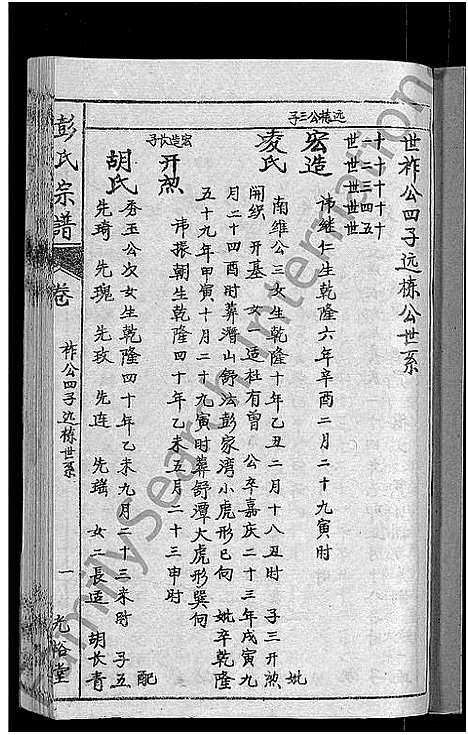 世祚公四子远栋公世系
十一世
十二世
十三世
十四世
十五世
远栋公三子
宏造 讳继仁生乾隆六年辛酉二月二十九寅时 妣
凌氏 南维公三女生乾隆十年乙丑二月十八丑时 子三开煞
开织 开基 女一造杜有曾 公卒嘉庆二十三年戊寅九
月二十四酉时葬潜山舒法彭家湾小虎形巳向 妣卒乾隆
五十九年甲寅十月二十九寅时葬舒潭大虎形巽向
宏造长子
开煞 讳振朝生乾隆四十年乙未五月二十三申时 配
胡氏 秀玉公次女生乾隆四十年乙未九月二十三未时 子五
先琦 先瑰 先玫 先连 先瑶 女二長适 胡长青
彭氏宗譜
卷
祚公四子远栋世系
一
光裕堂
FamilySearch International